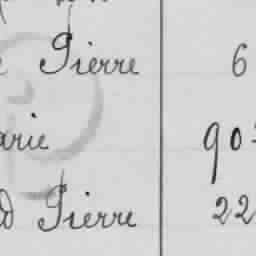 Pierre 6
arie 90
d Pierre 22